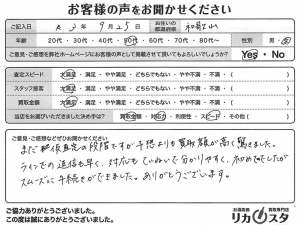 お客様の声をお聞かせください
ご記入日 R3年9月25日 お住いの都道府県 和歌山
年齢 20代・30代・40代・50代・60代・70代・80代〜 性別 男・女
ご意見・ご感想を弊社ホームページにお客様の声として掲載させて頂いてもよろしいでしょうか? Yes・No
査定スピード 大満足・満足・やや満足・どちらでもない・やや不満・不満
スタッフ接客 大満足・満足・やや満足・どちらでもない・やや不満・不満
買取金額 大満足・満足・やや満足・どちらでもない・やや不満・不満
当店をお選びいただきました決め手は? 買取金額・対応・利便性・スピード・その他( )
ご意見・ご感想などぜひお聞かせください。
まだ仮査定の段階ですが予想よりも買取額が高く驚きました。
ラインでの返信も早く、対応もていねいで分かりやすく、初めてでしたが
スムーズに手続きができました。ありがとうございます。
ご協力ありがとうございました。
誠にありがとうございました。
お酒高価買取専門店
リカスタ